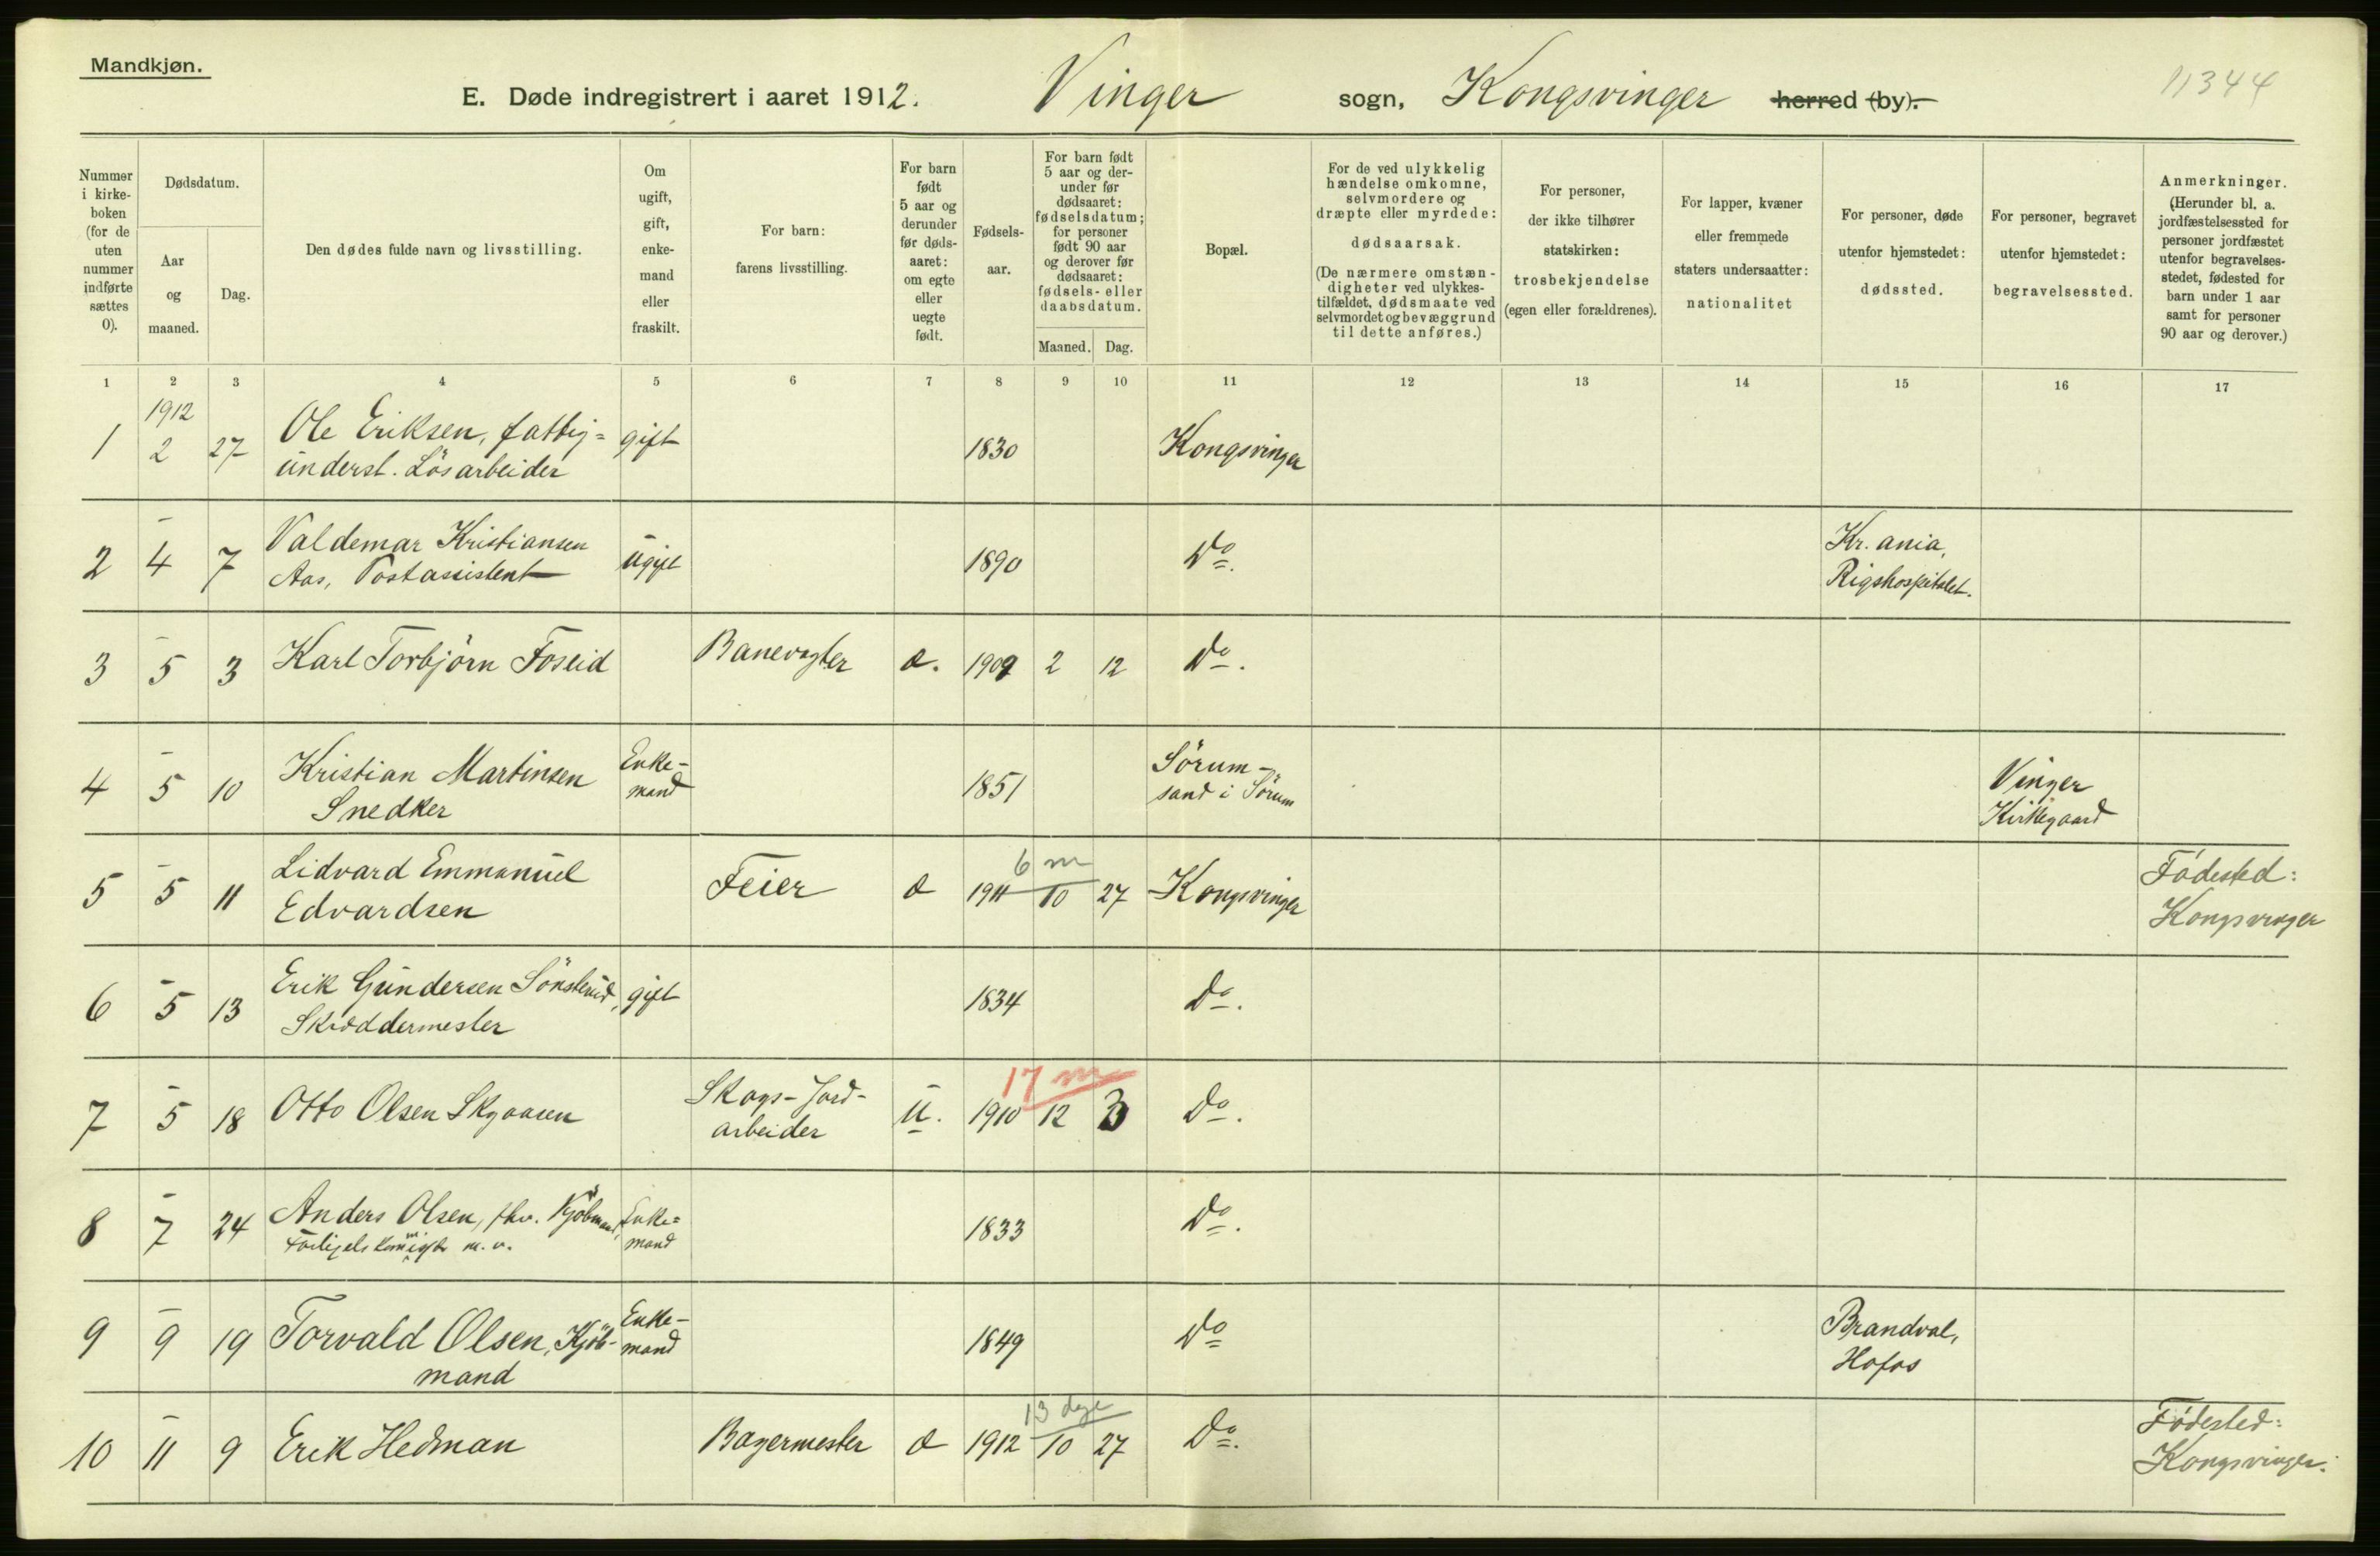 Mandkjøn.
E. Døde indregistrert i aaret 1912. Vinger sogn, Kongsvinger herred (by).
11344
Nummer i kirke-boken (for de uten nummer indførte sættes 0).
Dødsdatum.
Aar og maaned.
Dag.
Den dødes fulde navn og livsstilling.
Om ugift, gift, enke-mand eller fraskilt.
For barn: farens livsstilling.
For barn født 5 aar og derunder før døds-aaret: om egte eller uegte født.
Fødsels-aar.
For barn født 5 aar og der-under før dødsaaret: fødselsdatum; for personer født 90 aar og derover før dødsaaret: fødsels- eller daabsdatum.
Maaned. Dag.
Bopæl.
For de ved ulykkelig hændelse omkomne, selvmordere og dræpte eller myrdede: dødsaarsak. (De nærmere omstæn-digheter ved ulykkes-tilfældet, dødsmaate ved selvmordet og bevæggrund til dette anføres.)
For personer, der ikke tilhører statskirken: trosbekjendelse (egen eller forældrenes).
For lapper, kvæner eller fremmede staters undersaatter: nationalitet
For personer, døde utenfor hjemstedet: dødssted.
For personer, begravet utenfor hjemstedet: begravelsessted.
Anmerkninger. (Herunder bl. a. jordfæstelsessted for personer jordfæstet utenfor begravelses-stedet, fødested for barn under 1 aar samt for personer 90 aar og derover.)
1 2 3 4 5 6 7 8 9 10 11 12 13 14 15 16 17
1912
1 2 27 Ole Eriksen, fattig= gift 1830 Kongsvinger
underst. Løsarbeider
2 - 4 7 Valdemar Kristiansen ugift 1890 Do. Kr.ania,
Aas, Postassistent Rigshospitalet.
3 - 5 3 Karl Torbjörn Foseid Banevogter e. 1909 2 12 Do.
4 - 5 10 Kristian Martinsen Enke- 1851 Sörum- Vinger
Snedker mand sand i Sörum Kirkegaard
5 - 5 11 Lidvard Emmanuel Feier e 1911 6 m 10 27 Kongsvinger Födested:
Edvardsen Kongsvinger
6 - 5 13 Erik Gundersen Sönsterud, gift 1834 Do.
Skræddermester
7 - 5 18 Otto Olsen Skyaasen Skogs-Jord- u. 1910 17 m 12 3 Do.
arbeider
8 - 7 24 Anders Olsen, fhv. Kjöbmand, Enke= 1833 Do.
m. v. mand
9 - 9 19 Torvald Olsen, Kjöb- Enke- 1849 Do Brandval,
mand mand Hofos
10 - 11 9 Erik Hedman Bagermester e 1912 13 dage 10 27 Do. Födested:
Kongsvinger.